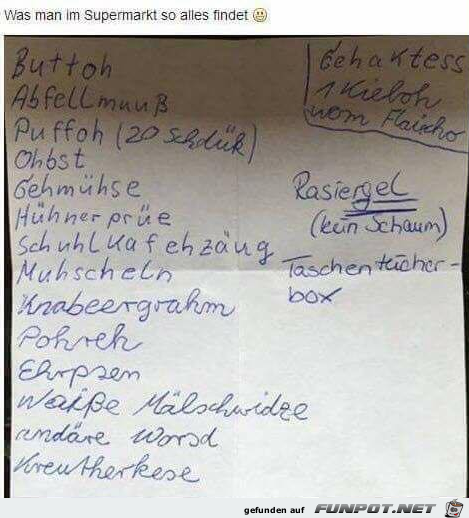 Was man im Supermarkt so alles findet 😃
Buttoh
Abfellmuuß
Puffoh (20 Schdük)
Ohbst
Gehmühse
Hühnerprüe
Schuhlkafehzäug
Muhscheln
Knabeergrahm
Pohreh
Ehrpsen
Waiße Mälschwidze
andäre Worsd
Kreutherkese
Gehaktess
1 Kieloh
vom Flaischo
Rasiergel
(kein Schaum)
Taschentücher-
box
gefunden auf FUNPOT.NET